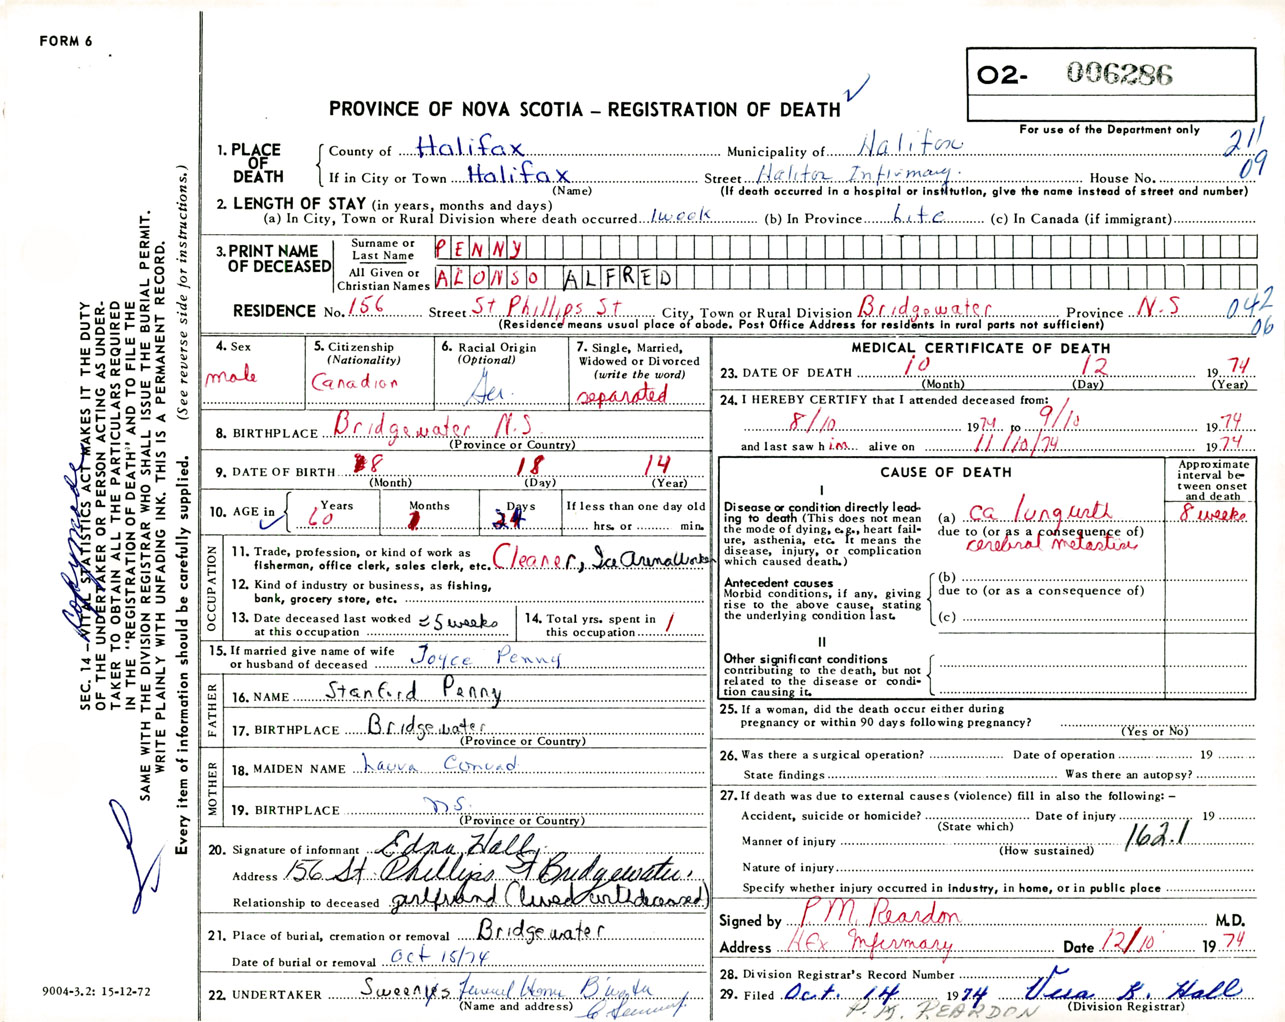 FORM 6
O2- 006286
For use of the Department only
PROVINCE OF NOVA SCOTIA – REGISTRATION OF DEATH
211
09
1. PLACE OF DEATH
County of Halifax Municipality of Halifax
If in City or Town Halifax Street Halifax Infirmary House No.
(Name) (If death occurred in a hospital or institution, give the name instead of street and number)
2. LENGTH OF STAY (in years, months and days)
(a) In City, Town or Rural Division where death occurred 1 week (b) In Province Life (c) In Canada (if immigrant)
3. PRINT NAME OF DECEASED
Surname or Last Name PENNY
All Given or Christian Names ALONSO ALFRED
RESIDENCE No. 156 Street St Phillips St City, Town or Rural Division Bridgewater Province N.S
(Residence means usual place of abode. Post Office Address for residents in rural parts not sufficient)
042
06
4. Sex
male
5. Citizenship
(Nationality)
Canadian
6. Racial Origin
(Optional)
Ger.
7. Single, Married,
Widowed or Divorced
(write the word)
separated
8. BIRTHPLACE Bridgewater N.S.
(Province or Country)
9. DATE OF BIRTH 8 18 14
(Month) (Day) (Year)
10. AGE in
Years Months Days If less than one day old
60 1 24 hrs. or min.
OCCUPATION
11. Trade, profession, or kind of work as
fisherman, office clerk, sales clerk, etc. Cleaner, Ice Arena Worker
12. Kind of industry or business, as fishing,
bank, grocery store, etc.
13. Date deceased last worked
at this occupation 5 weeks
14. Total yrs. spent in
this occupation 1
15. If married give name of wife
or husband of deceased Joyce Penny
FATHER
16. NAME Stanford Penny
17. BIRTHPLACE Bridgewater
(Province or Country)
MOTHER
18. MAIDEN NAME Laura Conrad
19. BIRTHPLACE N.S.
(Province or Country)
20. Signature of informant Edna Hall
Address 156 St. Phillips St Bridgewater.
Relationship to deceased girlfriend (lived with deceased)
21. Place of burial, cremation or removal Bridgewater
Date of burial or removal Oct 15/74
22. UNDERTAKER Sweeny's Funeral Home
(Name and address)
MEDICAL CERTIFICATE OF DEATH
23. DATE OF DEATH 10 12 1974
(Month) (Day) (Year)
24. I HEREBY CERTIFY that I attended deceased from:
8/10 1974 to 9/10 1974
and last saw him alive on 11/10/74 1974
CAUSE OF DEATH
Approximate interval between onset and death
I
Disease or condition directly leading to death (This does not mean the mode of dying, e.g., heart failure, asthenia, etc. It means the disease, injury, or complication which caused death.)
(a) ca lung with 8 weeks
due to (or as a consequence of)
cerebral metastia
Antecedent causes
Morbid conditions, if any, giving rise to the above cause, stating the underlying condition last.
(b)
due to (or as a consequence of)
(c)
II
Other significant conditions
contributing to the death, but not related to the disease or condition causing it.
25. If a woman, did the death occur either during
pregnancy or within 90 days following pregnancy?
(Yes or No)
26. Was there a surgical operation? Date of operation 19
State findings Was there an autopsy?
27. If death was due to external causes (violence) fill in also the following: –
Accident, suicide or homicide? Date of injury 19
(State which)
Manner of injury 162.1
(How sustained)
Nature of injury
Specify whether injury occurred in industry, in home, or in public place
Signed by P M Reardon M.D.
Address Hfx Infirmary Date 12/10 1974
28. Division Registrar's Record Number
29. Filed Oct. 14 1974 Vera K. Hall
(Division Registrar)
P. M. REARDON
SEC. 14 – VITAL STATISTICS ACT MAKES IT THE DUTY
OF THE UNDERTAKER OR PERSON ACTING AS UNDER-
TAKER TO OBTAIN ALL THE PARTICULARS REQUIRED
IN THE "REGISTRATION OF DEATH" AND TO FILE THE
SAME WITH THE DIVISION REGISTRAR WHO SHALL ISSUE THE BURIAL PERMIT.
WRITE PLAINLY WITH UNFADING INK. THIS IS A PERMANENT RECORD.
Every item of information should be carefully supplied. (See reverse side for instructions.)
9004-3.2: 15-12-72